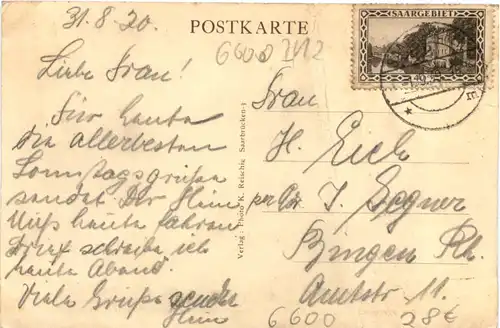 31.8.30.
POSTKARTE
6600 2112
SAARGEBIET
40
Liebe Frau!
Für heute
die allerbesten
Sonntagsgrüße
sendet Dir
muß heute fahren
Brief schreibe ich
heute Abend.
Viele Grüße sendet
Verlag: Photo K. Reischig Saarbrücken-1
Frau
H. Eich
J. Egner
Bingen Rh.
Amtstr 11.
6600
28€